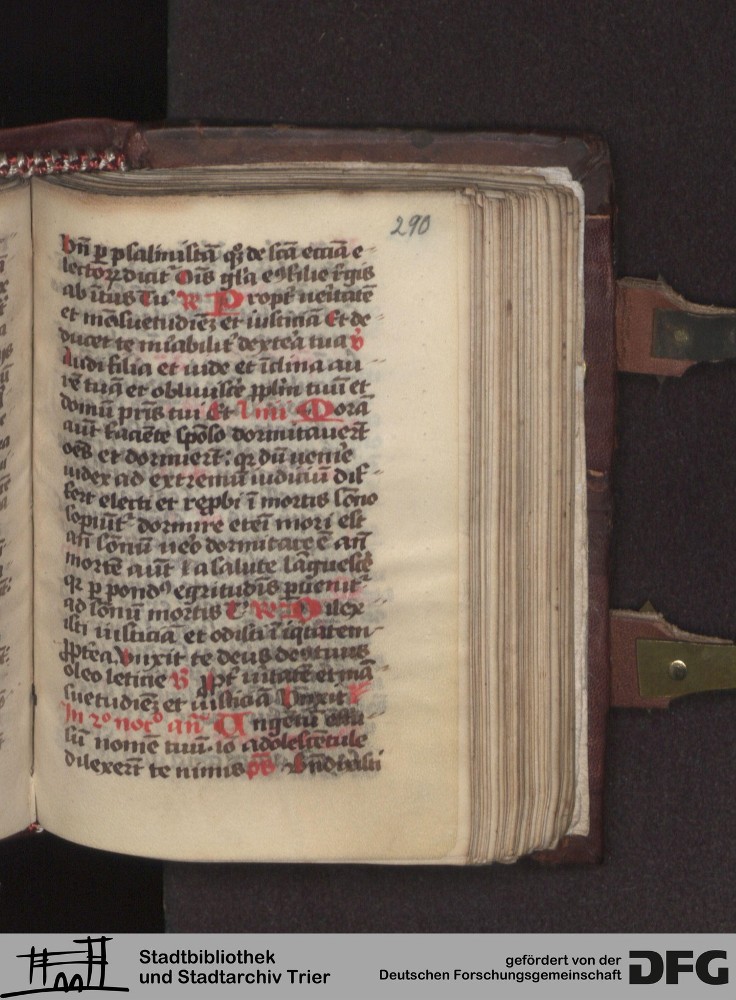 290
bn̄ ꝑ psalmistā qͦ de scā ecciā e-
lectoꝝ dicit Oīs gl̄a eꝰ filie r̄gis
ab ītus Tu R Propt̄ ueritatē
et māsuetudīeꝫ et iusticiā Et de-
ducet te mīabilit̄ dextēa tua v̄
Audi filia et uide et īclina au
rē tuā et obliuisc̄e ppl̄m tuū et
domū pr̄is tui Et
Morā
aūt faciēte spōso dormitauerūt
oēs et dormierūt: qꝛ dū uenīe
iudex ad extremū iudiciū dif-
fert electi et rep̄bi ī mortis sōno
sopiūt̄ dormire eteī mori est
an̄ sōnū ueͦ dormitare ē an̄
mortē aūt a salute lāguescē
qꝛ ꝑ pondꝰ egritudīs ꝑuenit̄
ad sōnū mortis T R Dilex
isti iusticiā et odisti īiquitatem
ꝓptea Vnxit te deus deꝰ tuus
oleo leticie V Ppt̄ uītatē et mā
suetudīeꝫ et iusticiā Vnxit
In 2ͦ nocͦ an̄ Vngētū effu
sū nomē tuū io adolescētule
dilexerūt te nimis ps̄ Bn̄dixisti
Stadtbibliothek
und Stadtarchiv Trier
gefördert von der
Deutschen Forschungsgemeinschaft
DFG